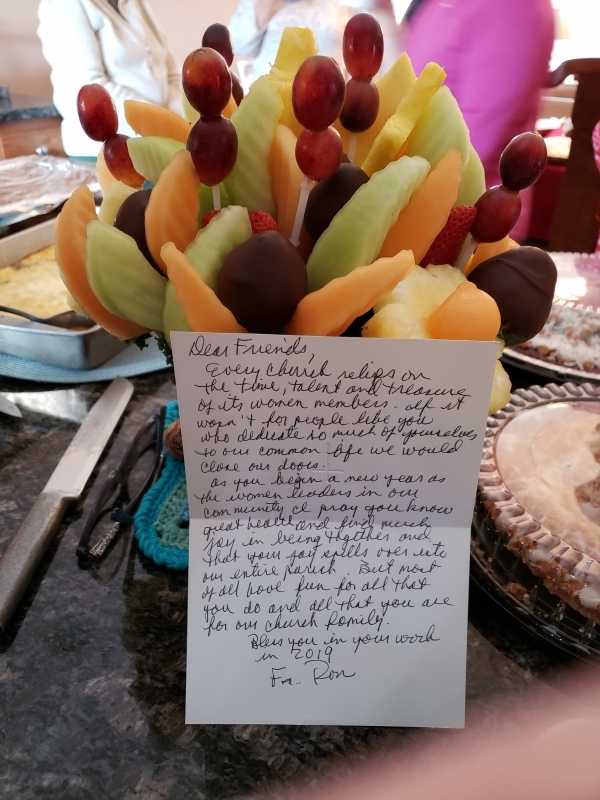 Dear Friends,
Every church relies on
the time, talent and treasure
of its women members. If it
wasn't for people like you
who dedicate so much of yourselves
to our common life we would
close our doors.
As you begin a new year as
the women leaders in our
community I pray you know
great health and find much
joy in being together and
that your joy spills over into
our entire parish. But most
of all have fun for all that
you do and all that you are
for our church family.
Bless you in your work
in 2019
Fr. Ron